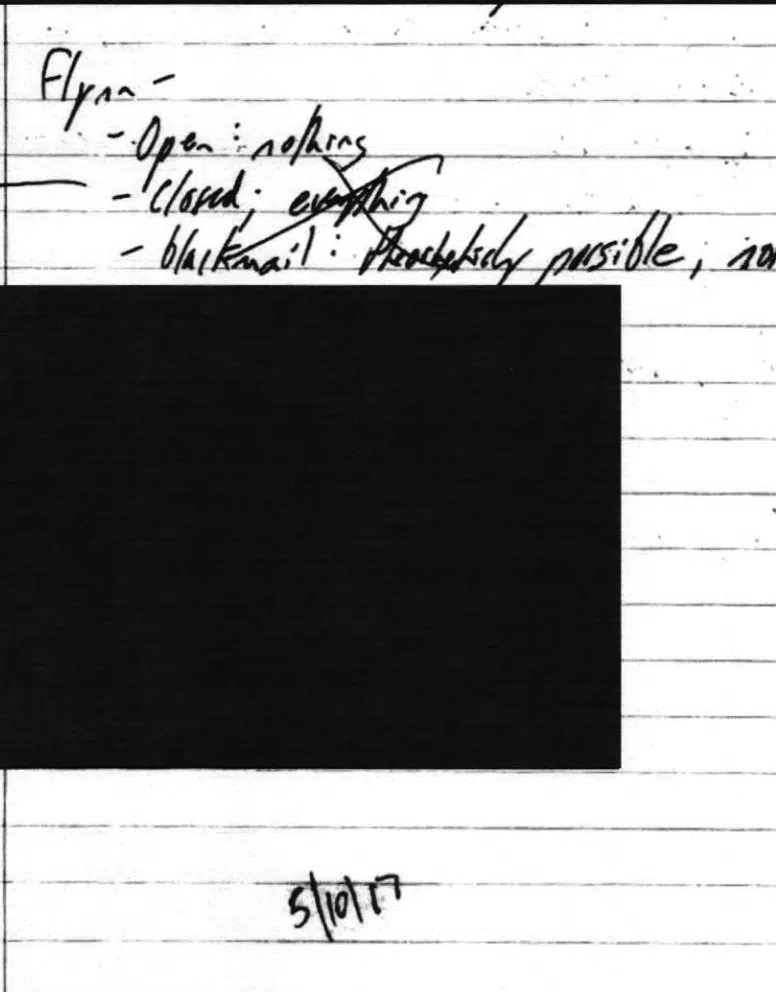 Flynn -
- Open: nothing
- Closed; everything
- blackmail: theoretically possible,
5/10/17